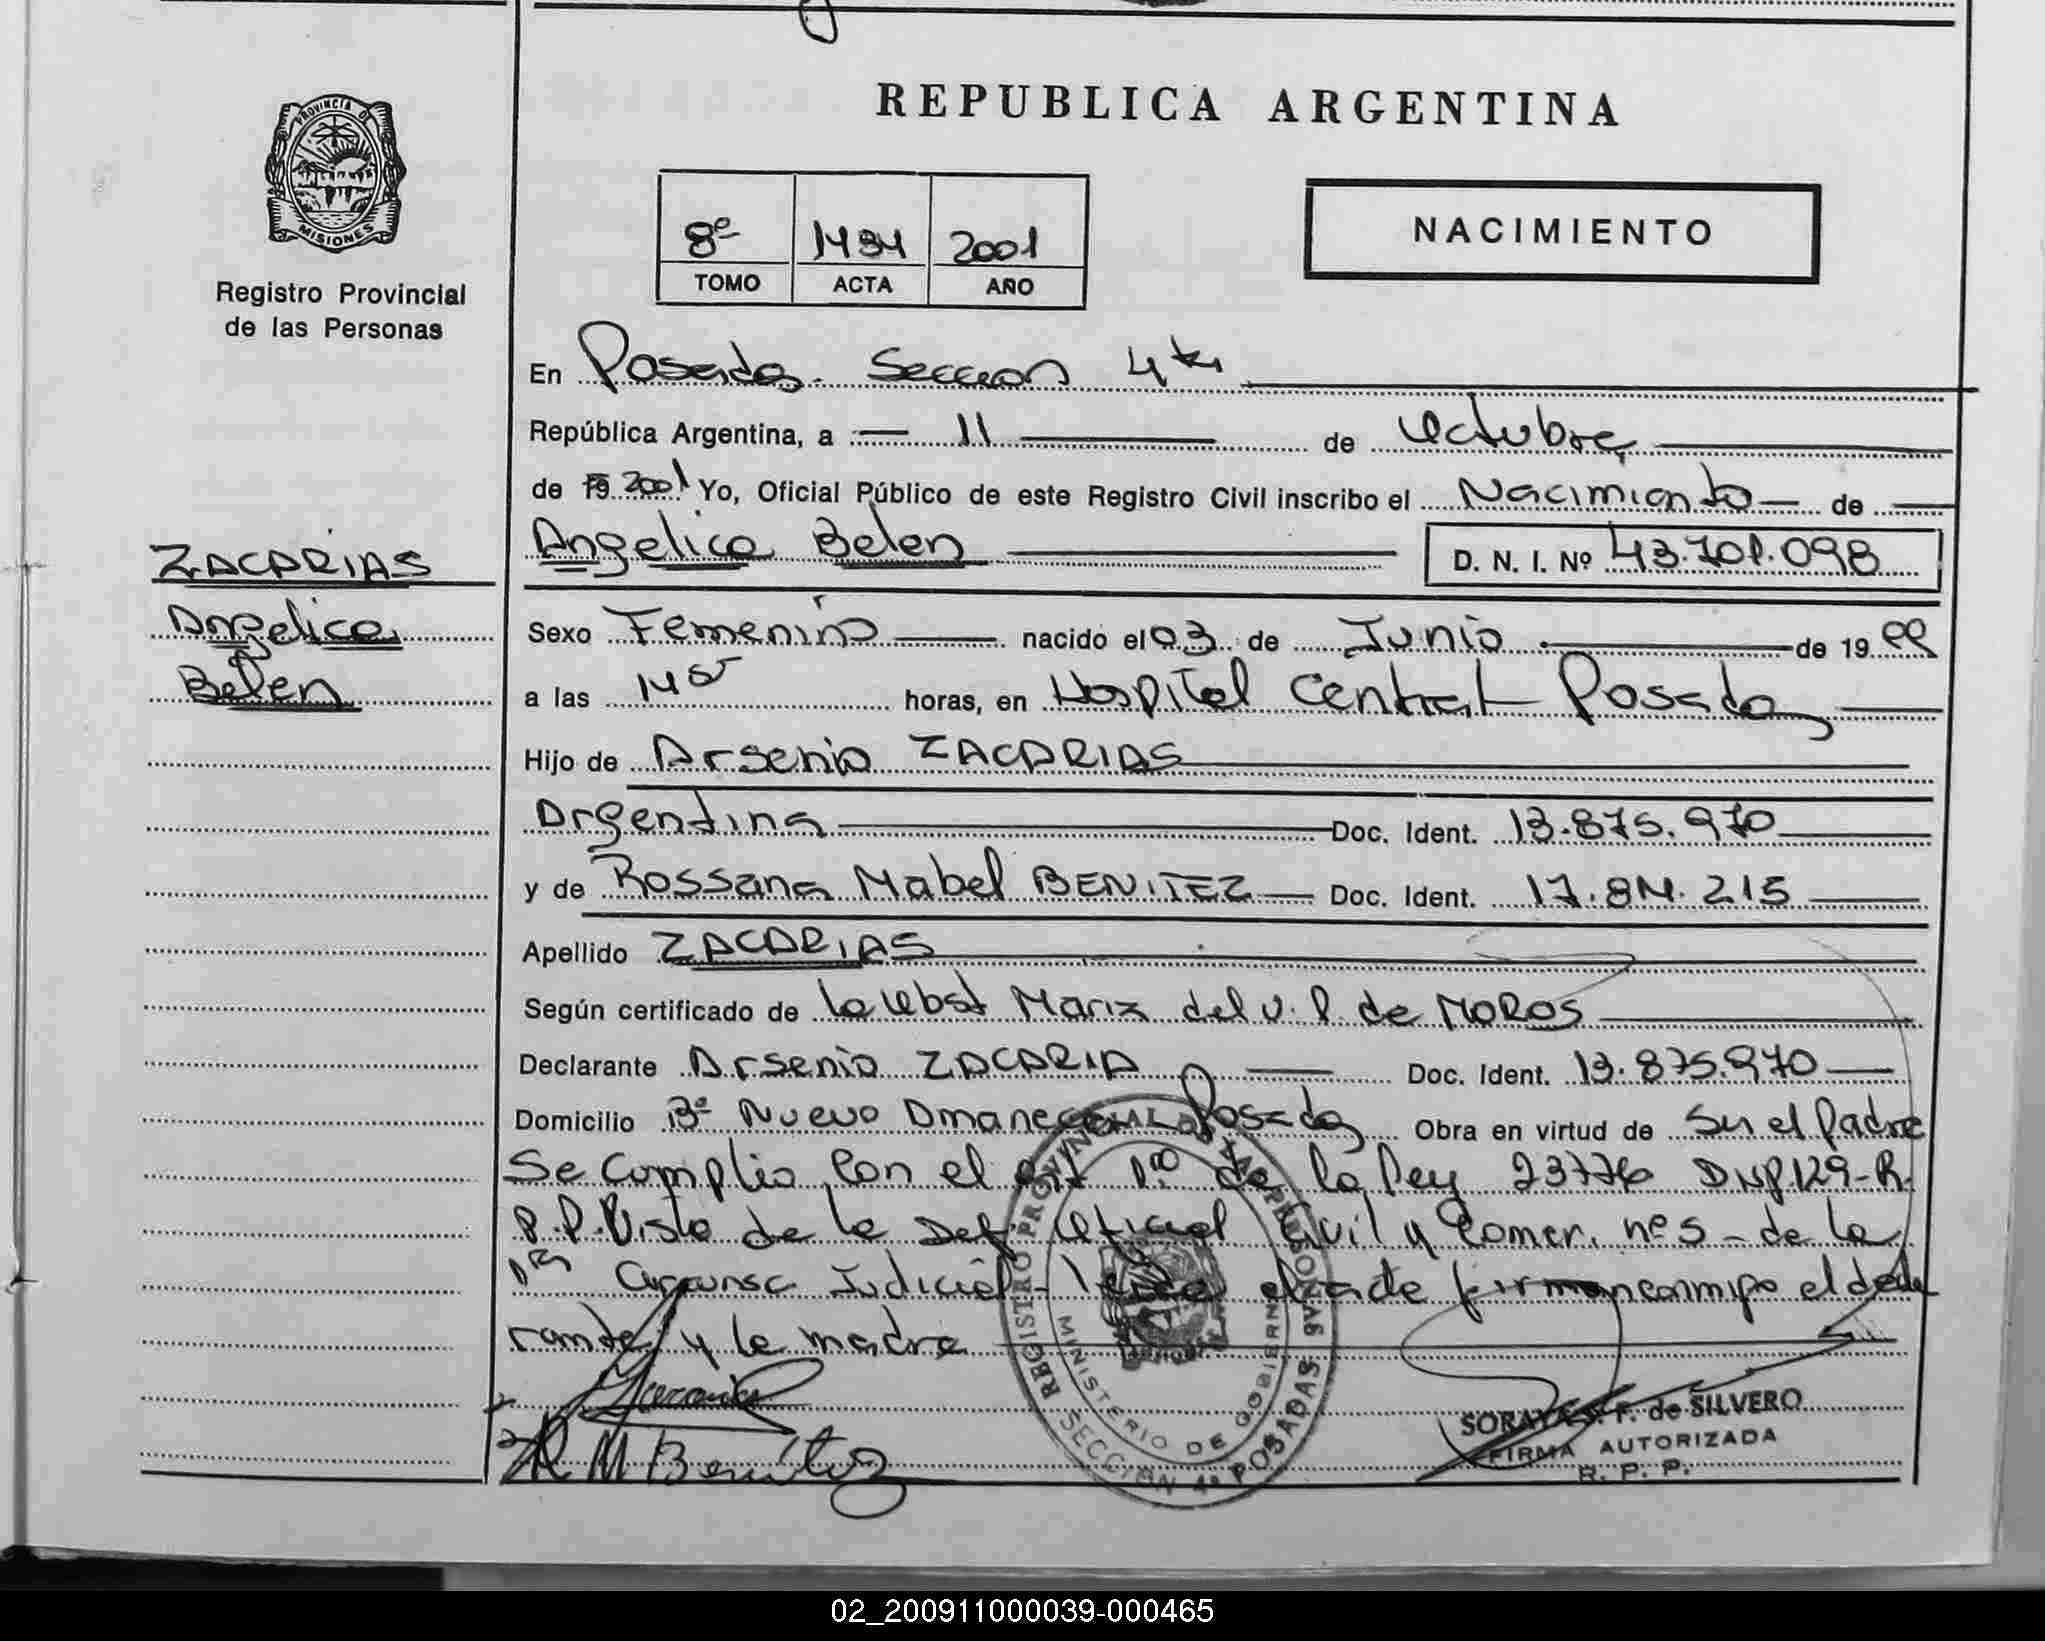 REPUBLICA ARGENTINA
PROVINCIA DE
MISIONES
Registro Provincial
de las Personas
8º 1434 2001
TOMO ACTA AÑO
NACIMIENTO
En Posadas. Seccion 4ta
República Argentina, a 11 de Octubre
de 19 2001 Yo, Oficial Público de este Registro Civil inscribo el Nacimiento de
Angelica Belen D. N. I. Nº 43.701.098
ZACARIAS
Angelica
Belen
Sexo Femenino nacido el 03 de Junio de 1999
a las 14 05 horas, en Hospital Central Posadas
Hijo de Arsenio ZACARIAS
Argentina Doc. Ident. 13.875.970
y de Rossana Mabel BENITEZ Doc. Ident. 17.814.215
Apellido ZACARIAS
Según certificado de la Obst Mariz del V. P. de MOROS
Declarante Arsenio ZACARIA Doc. Ident. 13.875.970
Domicilio Bº Nuevo Amanecer Posadas Obra en virtud de Ser el Padre
Se Cumplio con el art 1ro de la Ley 23776 Disp.129-R.
P.P. Vista de la Def. Oficial Civil y Comer. nº 5 - de la
1ra Circunsc Judicial - el acta firman conmigo el decla
rante y la madre
R M Benítez
REGISTRO PROVINCIAL DE LAS PERSONAS
MINISTERIO DE GOBIERNO
SECCION 4ª POSADAS
SORAYA F. de SILVERO
FIRMA AUTORIZADA
R. P. P.
02_200911000039-000465